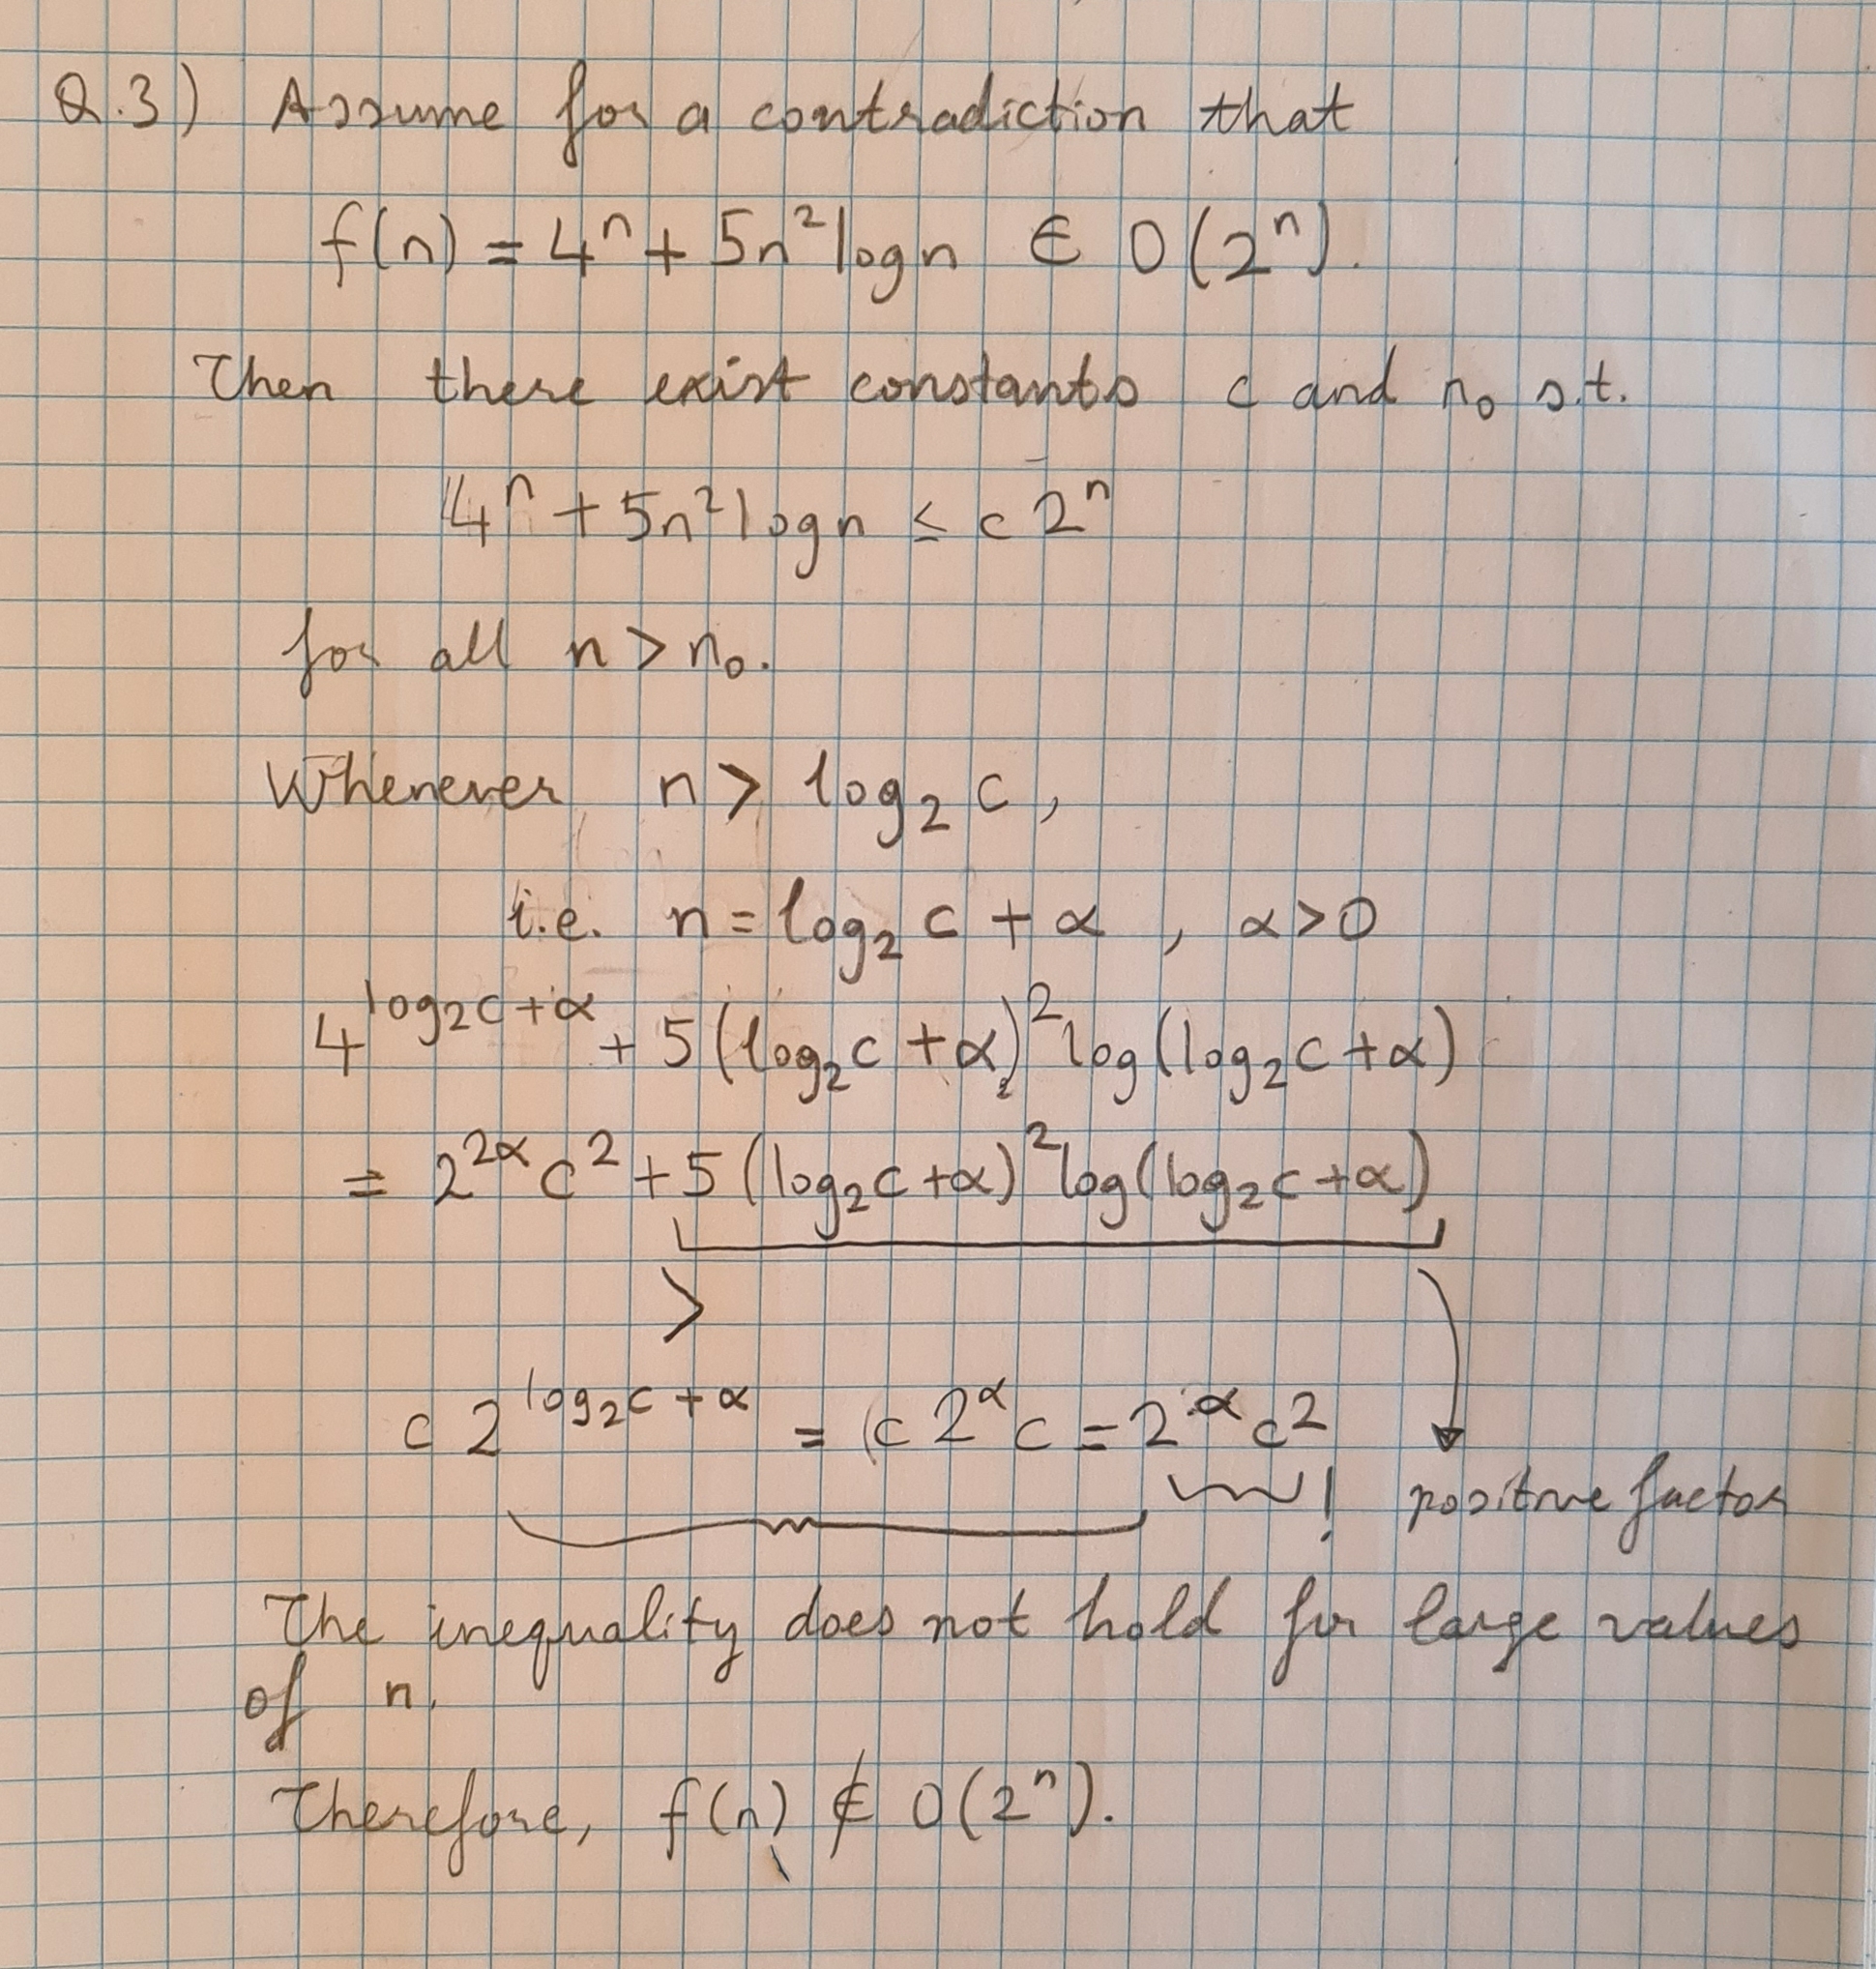 Q.3) Assume for a contradiction that
f(n) = 4ⁿ + 5n² log n ∈ O(2ⁿ).
Then there exist constants c and n₀ s.t.
4ⁿ + 5n² log n ≤ c 2ⁿ
for all n > n₀.
Whenever n > log₂ c,
i.e. n = log₂ c + α , α > 0
4^(log₂c + α) + 5(log₂c + α)² log(log₂c + α)
= 2^(2α) c² + 5(log₂c + α)² log(log₂c + α)
>
c 2^(log₂c + α) = c 2^α c = 2^α c²
! positive factor
The inequality does not hold for large values
of n.
Therefore, f(n) ∉ O(2ⁿ).